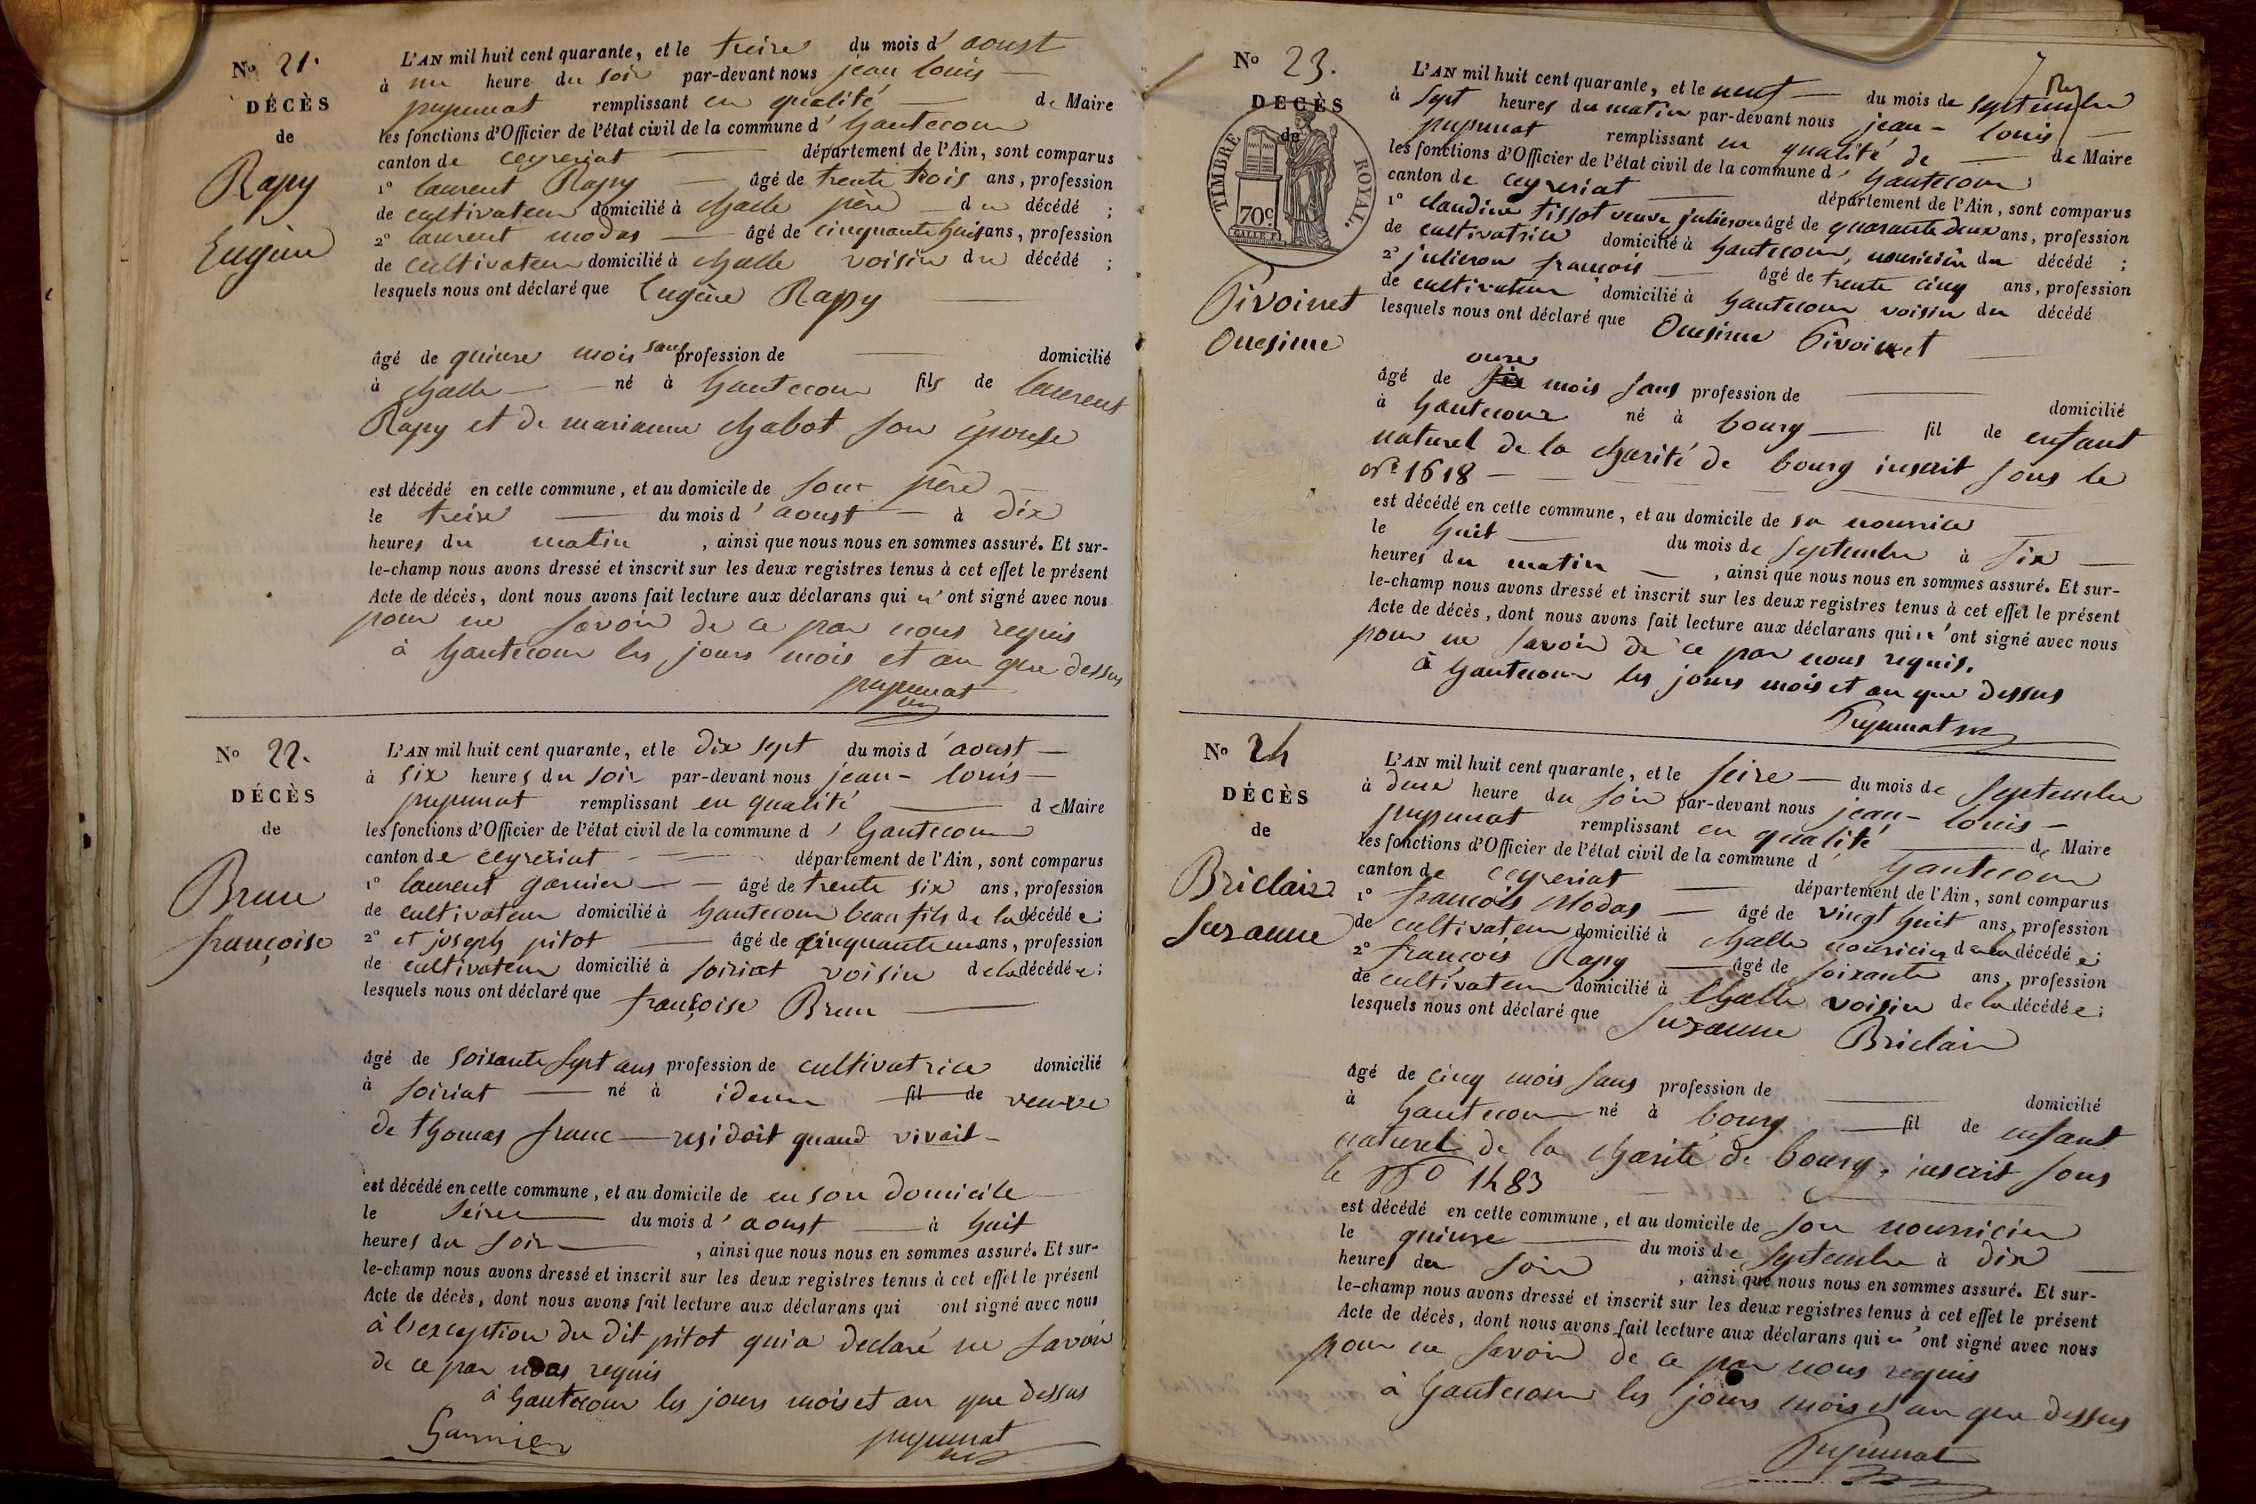 No 21.
DÉCÈS
de
Rapy
Eugène
L'AN mil huit cent quarante, et le treize du mois d'aoust
à une heure du soir par-devant nous jean louis
pupunat remplissant en qualité de Maire
les fonctions d'Officier de l'état civil de la commune d'hautecour
canton de ceyzeriat département de l'Ain, sont comparus
1° laurent Rapy âgé de trente trois ans, profession
de cultivateur domicilié à challe père du décédé ;
2° laurent modas âgé de cinquante huit ans, profession
de cultivateur domicilié à challe voisin du décédé ;
lesquels nous ont déclaré que Eugène Rapy
âgé de quinze mois sans profession de domicilié
à challe né à hautecour fils de laurent
Rapy et de marianne chabot son épouse
est décédé en cette commune, et au domicile de son père
le treize du mois d'aoust à dix
heures du matin, ainsi que nous nous en sommes assuré. Et sur-
le-champ nous avons dressé et inscrit sur les deux registres tenus à cet effet le présent
Acte de décès, dont nous avons fait lecture aux déclarans qui n'ont signé avec nous
pour ne savoir de ce par nous requis
à hautecour les jours mois et an que dessus
pupunat
No 22.
DÉCÈS
de
Brun
françoise
L'AN mil huit cent quarante, et le dix sept du mois d'aoust
à six heures du soir par-devant nous jean-louis
pupunat remplissant en qualité de Maire
les fonctions d'Officier de l'état civil de la commune d'hautecour
canton de ceyzeriat département de l'Ain, sont comparus
1° laurent garnier âgé de trente six ans, profession
de cultivateur domicilié à hautecour beau fils de la décédée ;
2° et joseph pitot âgé de cinquante un ans, profession
de cultivateur domicilié à soiriat voisin de la décédée ;
lesquels nous ont déclaré que françoise Brun
âgé de soixante sept ans profession de cultivatrice domicilié
à soiriat né à idem fil de veuve
de thomas franc residoit quand vivait
est décédé en cette commune, et au domicile de en son domicile
le seize du mois d'aoust à huit
heures du soir, ainsi que nous nous en sommes assuré. Et sur-
le-champ nous avons dressé et inscrit sur les deux registres tenus à cet effet le présent
Acte de décès, dont nous avons fait lecture aux déclarans qui ont signé avec nous
à l'exception du dit pitot qui a declaré ne savoir
de ce par nous requis
à hautecour les jours mois et an que dessus
Garnier pupunat
No 23.
DÉCÈS
de
TIMBRE ROYAL.
70c
Pivoinet
Onesime
L'AN mil huit cent quarante, et le neuf du mois de septembre
à sept heures du matin par-devant nous jean-louis
pupunat remplissant en qualité de de Maire
les fonctions d'Officier de l'état civil de la commune d'hautecour
canton de ceyzeriat département de l'Ain, sont comparus
1° claudine tissot veuve julieron âgé de quarante deux ans, profession
de cultivatrice domicilié à hautecour, nouricière du décédé ;
2° julieron françois âgé de trente cinq ans, profession
de cultivateur domicilié à hautecour voisin du décédé
lesquels nous ont déclaré que Onesime Pivoinet
onze
âgé de six mois sans profession de domicilié
à hautecour né à bourg fil de enfant
naturel de la charité de bourg inscrit sous le
No 1618
est décédé en cette commune, et au domicile de sa nourrice
le huit du mois de septembre à six
heures du matin, ainsi que nous nous en sommes assuré. Et sur-
le-champ nous avons dressé et inscrit sur les deux registres tenus à cet effet le présent
Acte de décès, dont nous avons fait lecture aux déclarans qui n'ont signé avec nous
pour ne savoir de ce par nous requis.
à hautecour les jours mois et an que dessus
Pupunat
No 24
DÉCÈS
de
Briclair
Suzanne
L'AN mil huit cent quarante, et le seize du mois de septembre
à deux heure du soir par-devant nous jean-louis
pupunat remplissant en qualité de Maire
les fonctions d'Officier de l'état civil de la commune d'hautecour
canton de ceyzeriat département de l'Ain, sont comparus
1° françois Modas âgé de vingt huit ans, profession
de cultivateur domicilié à challe nouricier de la décédée ;
2° françois Rapy âgé de soixante ans, profession
de cultivateur domicilié à challe voisin de la décédée ;
lesquels nous ont déclaré que Suzanne Briclair
âgé de cinq mois sans profession de domicilié
à hautecour né à bourg fil de enfant
naturel de la charité de bourg, inscrit sous
le No 1483
est décédé en cette commune, et au domicile de son nourricier
le quinze du mois de septembre à dix
heures du soir, ainsi que nous nous en sommes assuré. Et sur-
le-champ nous avons dressé et inscrit sur les deux registres tenus à cet effet le présent
Acte de décès, dont nous avons fait lecture aux déclarans qui n'ont signé avec nous
pour ne savoir de ce par nous requis
à hautecour les jours mois et an que dessus
Pupunat